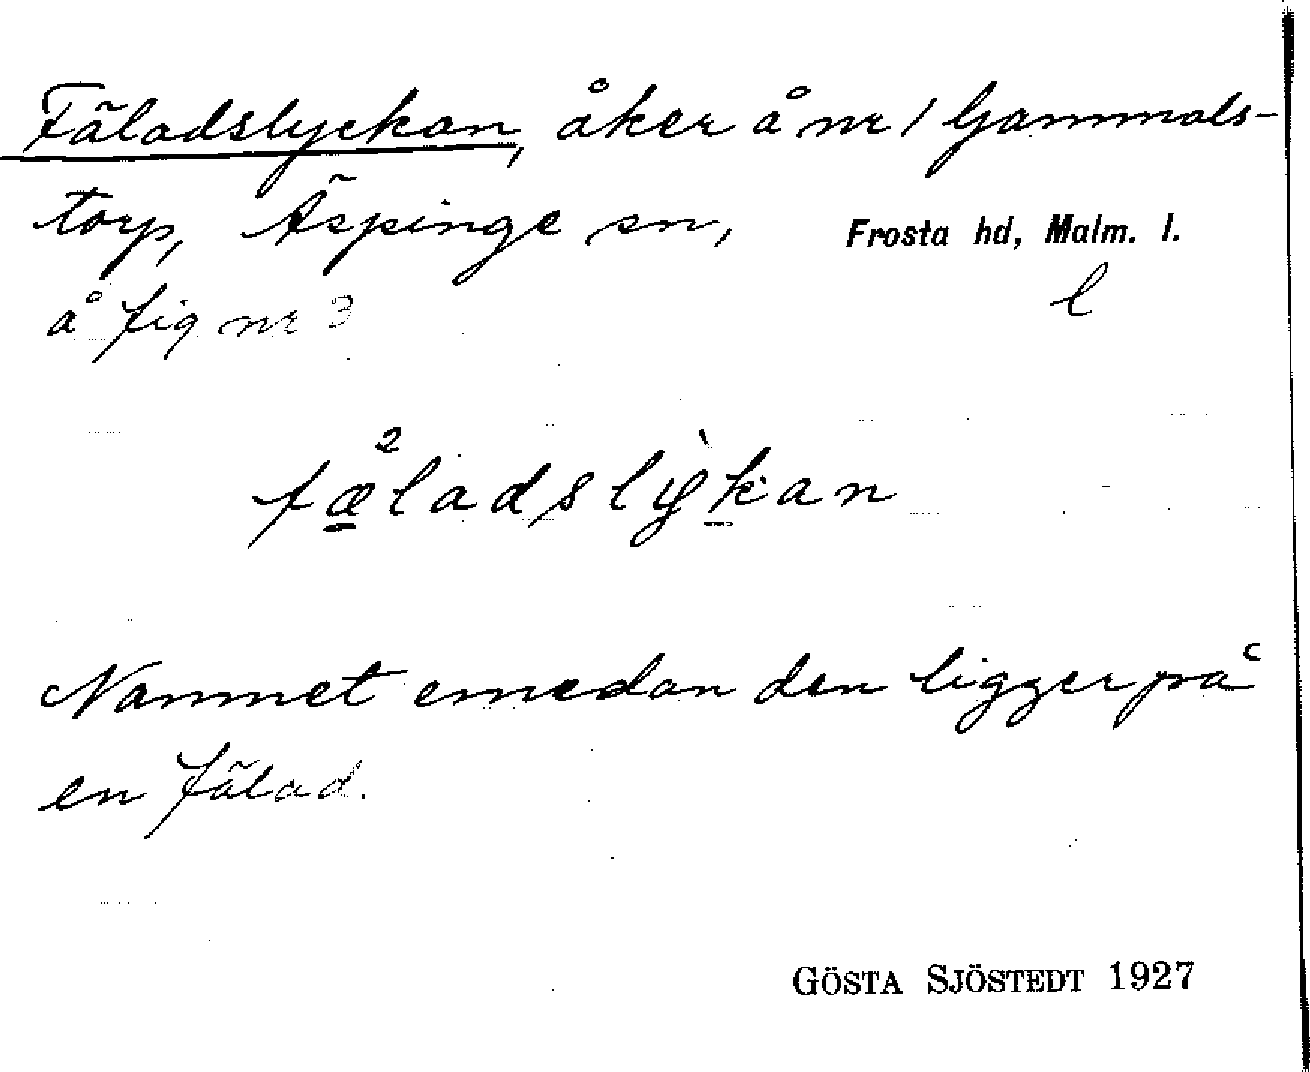 Fäladslyckan, åker å nr 1 Gammals-
torp, Äspinge sn, Frosta hd, Malm. l.
å fig nr 3 l
fæ²ladslỳkan
Namnet emedan den ligger på
en fälad.
GÖSTA SJÖSTEDT 1927